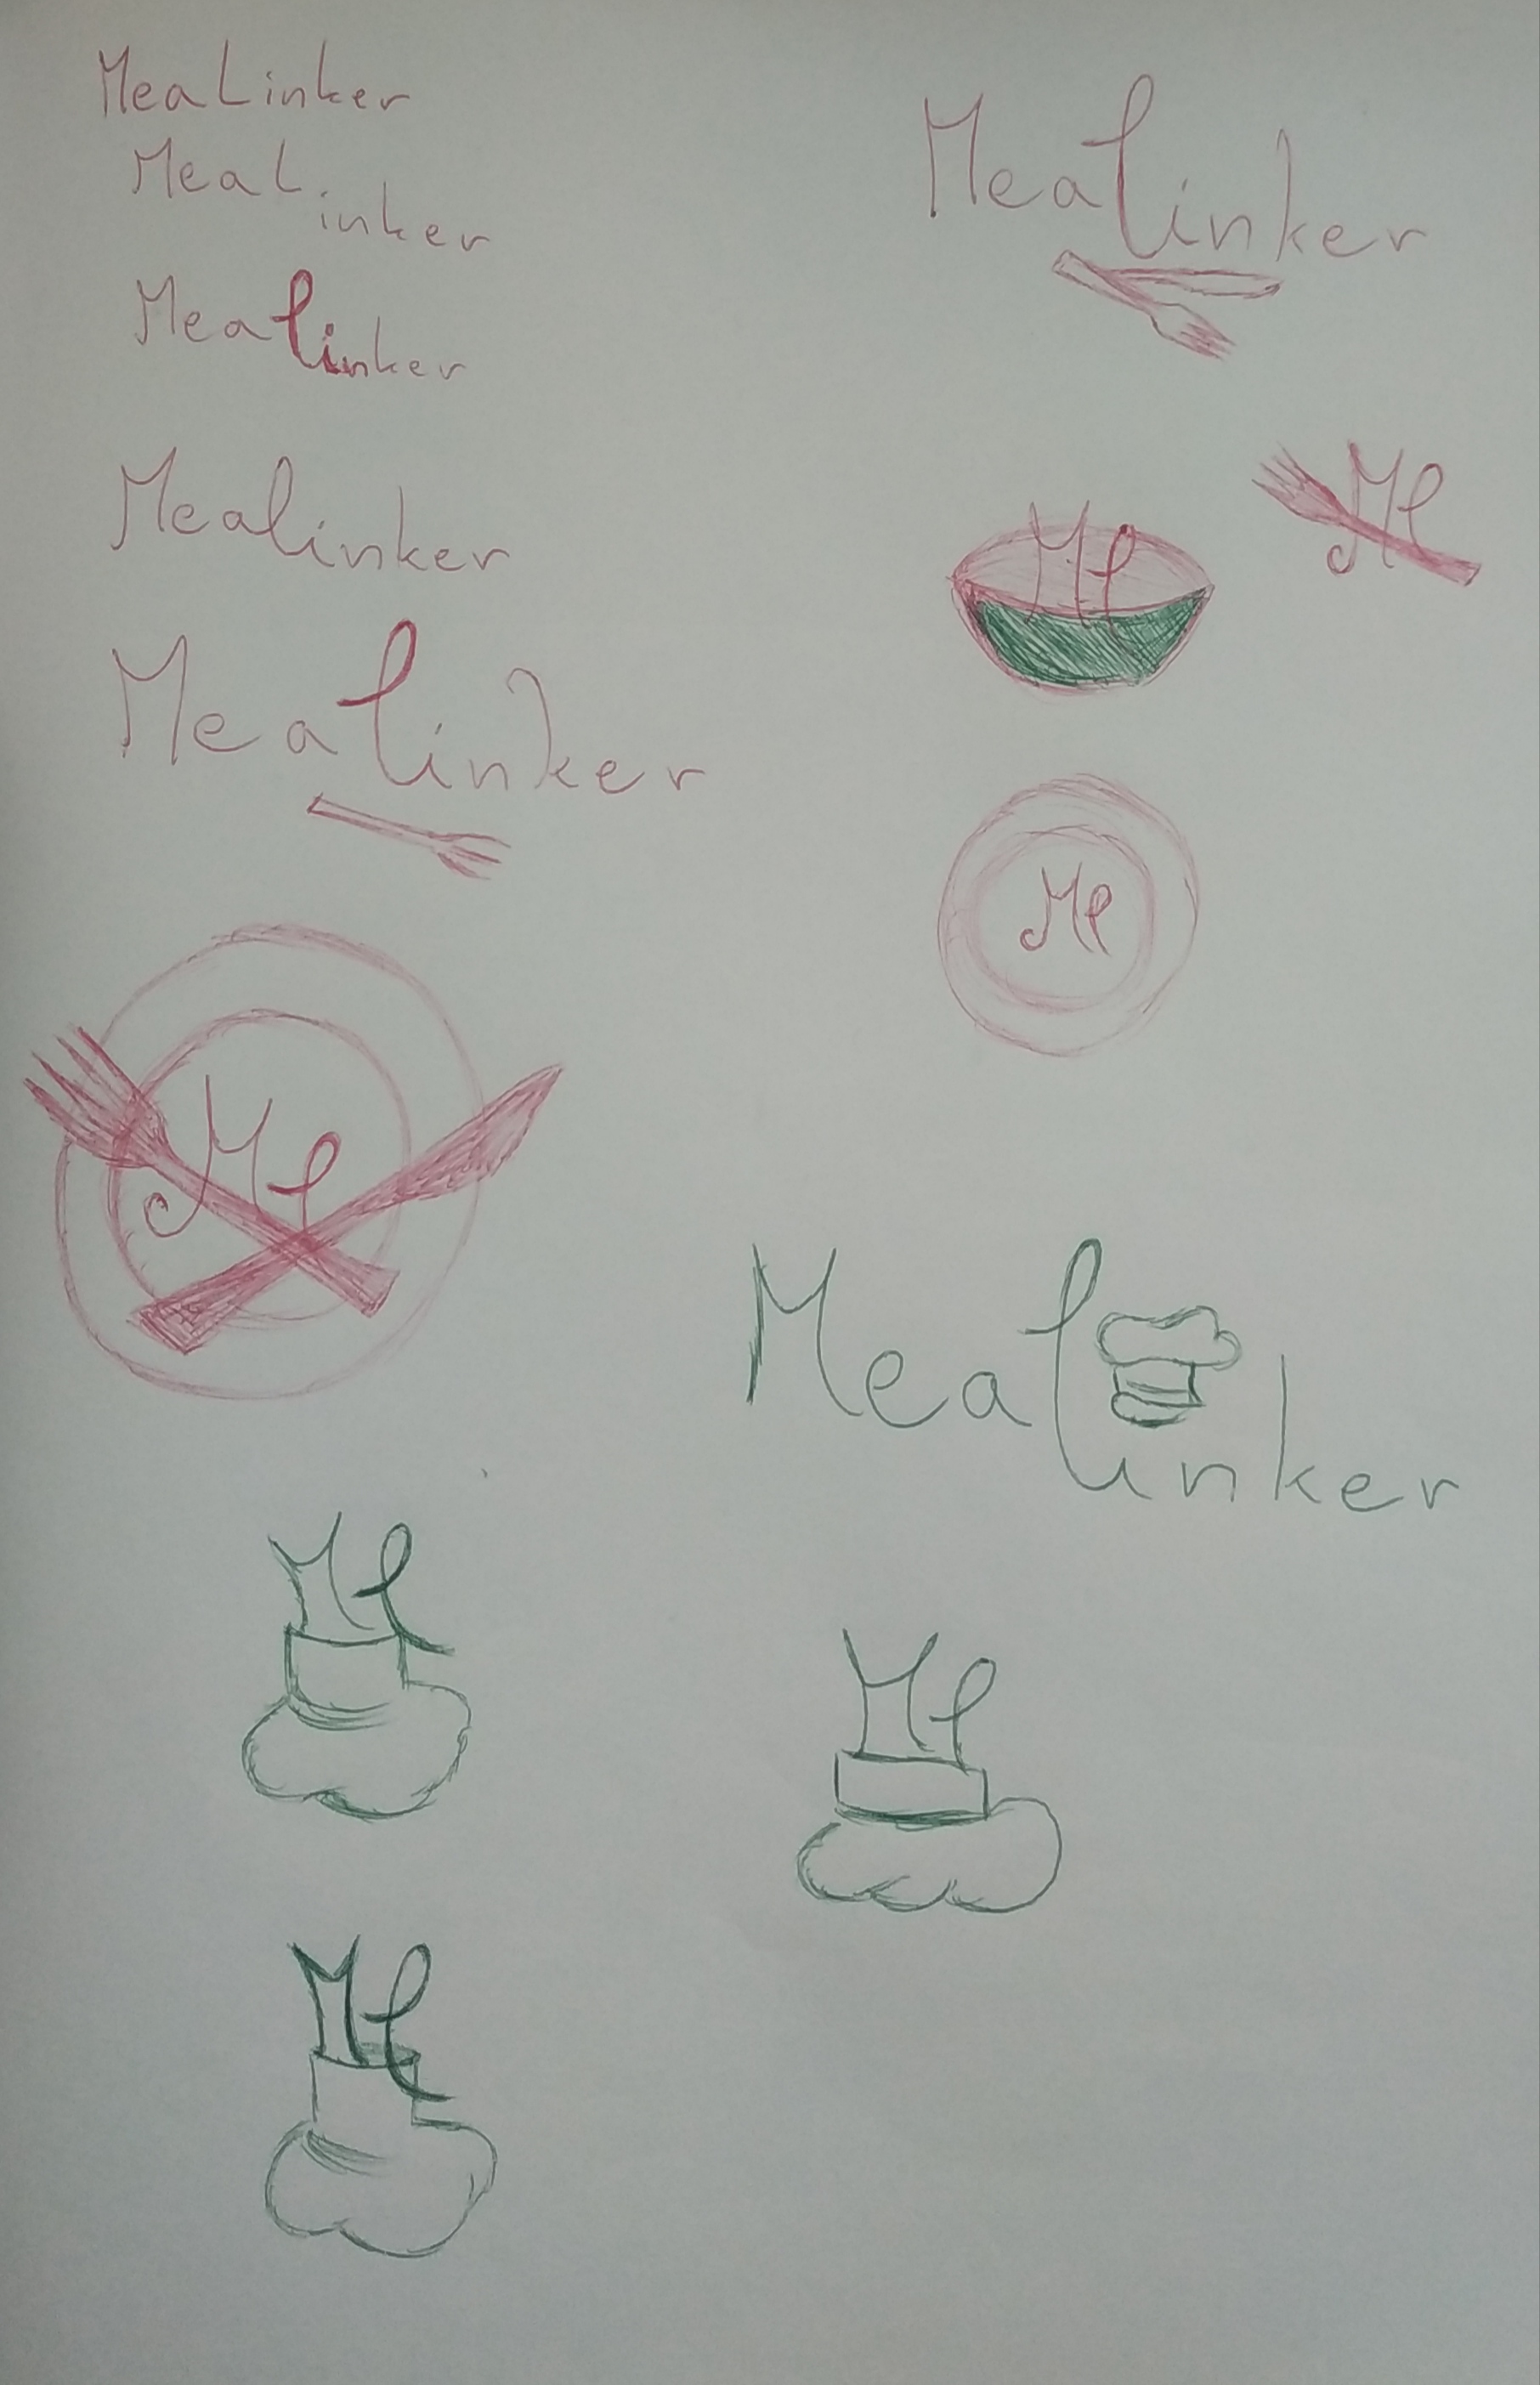 MeaLinker
MeaL
inker
Mealinker
Mealinker
Mealinker
Ml
Ml
Ml
Mealinker
Ml
Ml
Ml
Mealinker
Ml